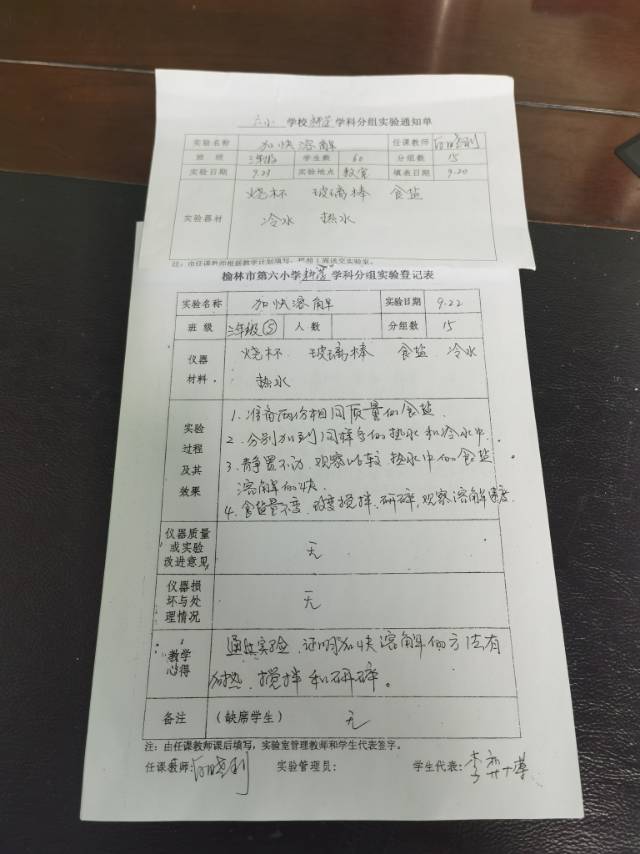 六小 学校科学学科分组实验通知单
实验名称 加快溶解 任课教师
班 级 三年级 学生数 60 分组数 15
实验日期 9.23 实验地点 教室 填表日期 9.20
实验器材 烧杯 玻璃棒 食盐
冷水 热水
注:由任课教师根据教学计划填写,提前1周送交实验室。
榆林市第六小学科学学科分组实验登记表
实验名称 加快溶解 实验日期 9.22
班 级 三年级⑤ 人 数 分组数 15
仪器 材料 烧杯 玻璃棒 食盐 冷水
热水
实验 过程 及其 效果 1、准备两份相同质量的食盐
2、分别加到同样多的热水和冷水中
3、静置不动,观察比较,热水中的食盐
溶解的快.
4、食盐量不变,改变搅拌、研碎,观察溶解速度
仪器质量 或实验 改进意见 无
仪器损 坏与处 理情况 无
教学 心得 通过实验,证明加快溶解的方法有
加热、搅拌和研碎。
备注 (缺席学生) 无
注:由任课教师课后填写,实验室管理教师和学生代表签字。
任课教师: 实验管理员: 学生代表:李